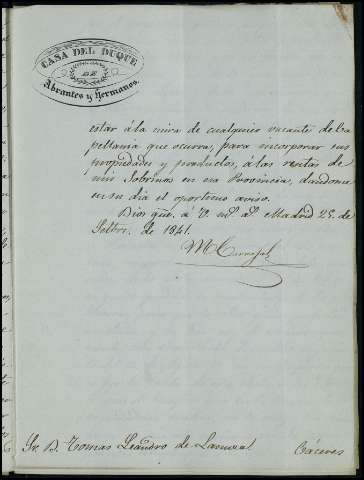 CASA DEL DUQUE
DE
Abrantes y Hermanos.
estar á la mira de cualquier vacante de Ca
pellania que ocurra, para incorporar sus
propiedades y productos, á las rentas de
mis Sobrinos en esa Provincia, dandome
en su dia el oportuno aviso.
Dios gue. á V. ms. as. Madrid 25 de
Setbre. de 1841.
M Carvajal
Sr. D. Tomas Leandro de
Cáceres